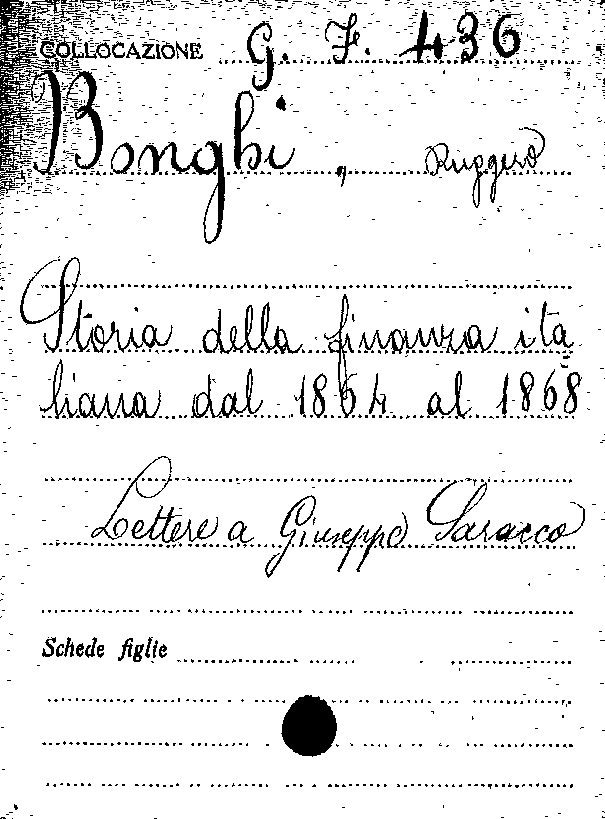 COLLOCAZIONE G. F. 436
Bonghi, Ruggero
Storia della finanza ita=
liana dal 1864 al 1868
Lettere a Giuseppe Saracco
Schede figlie